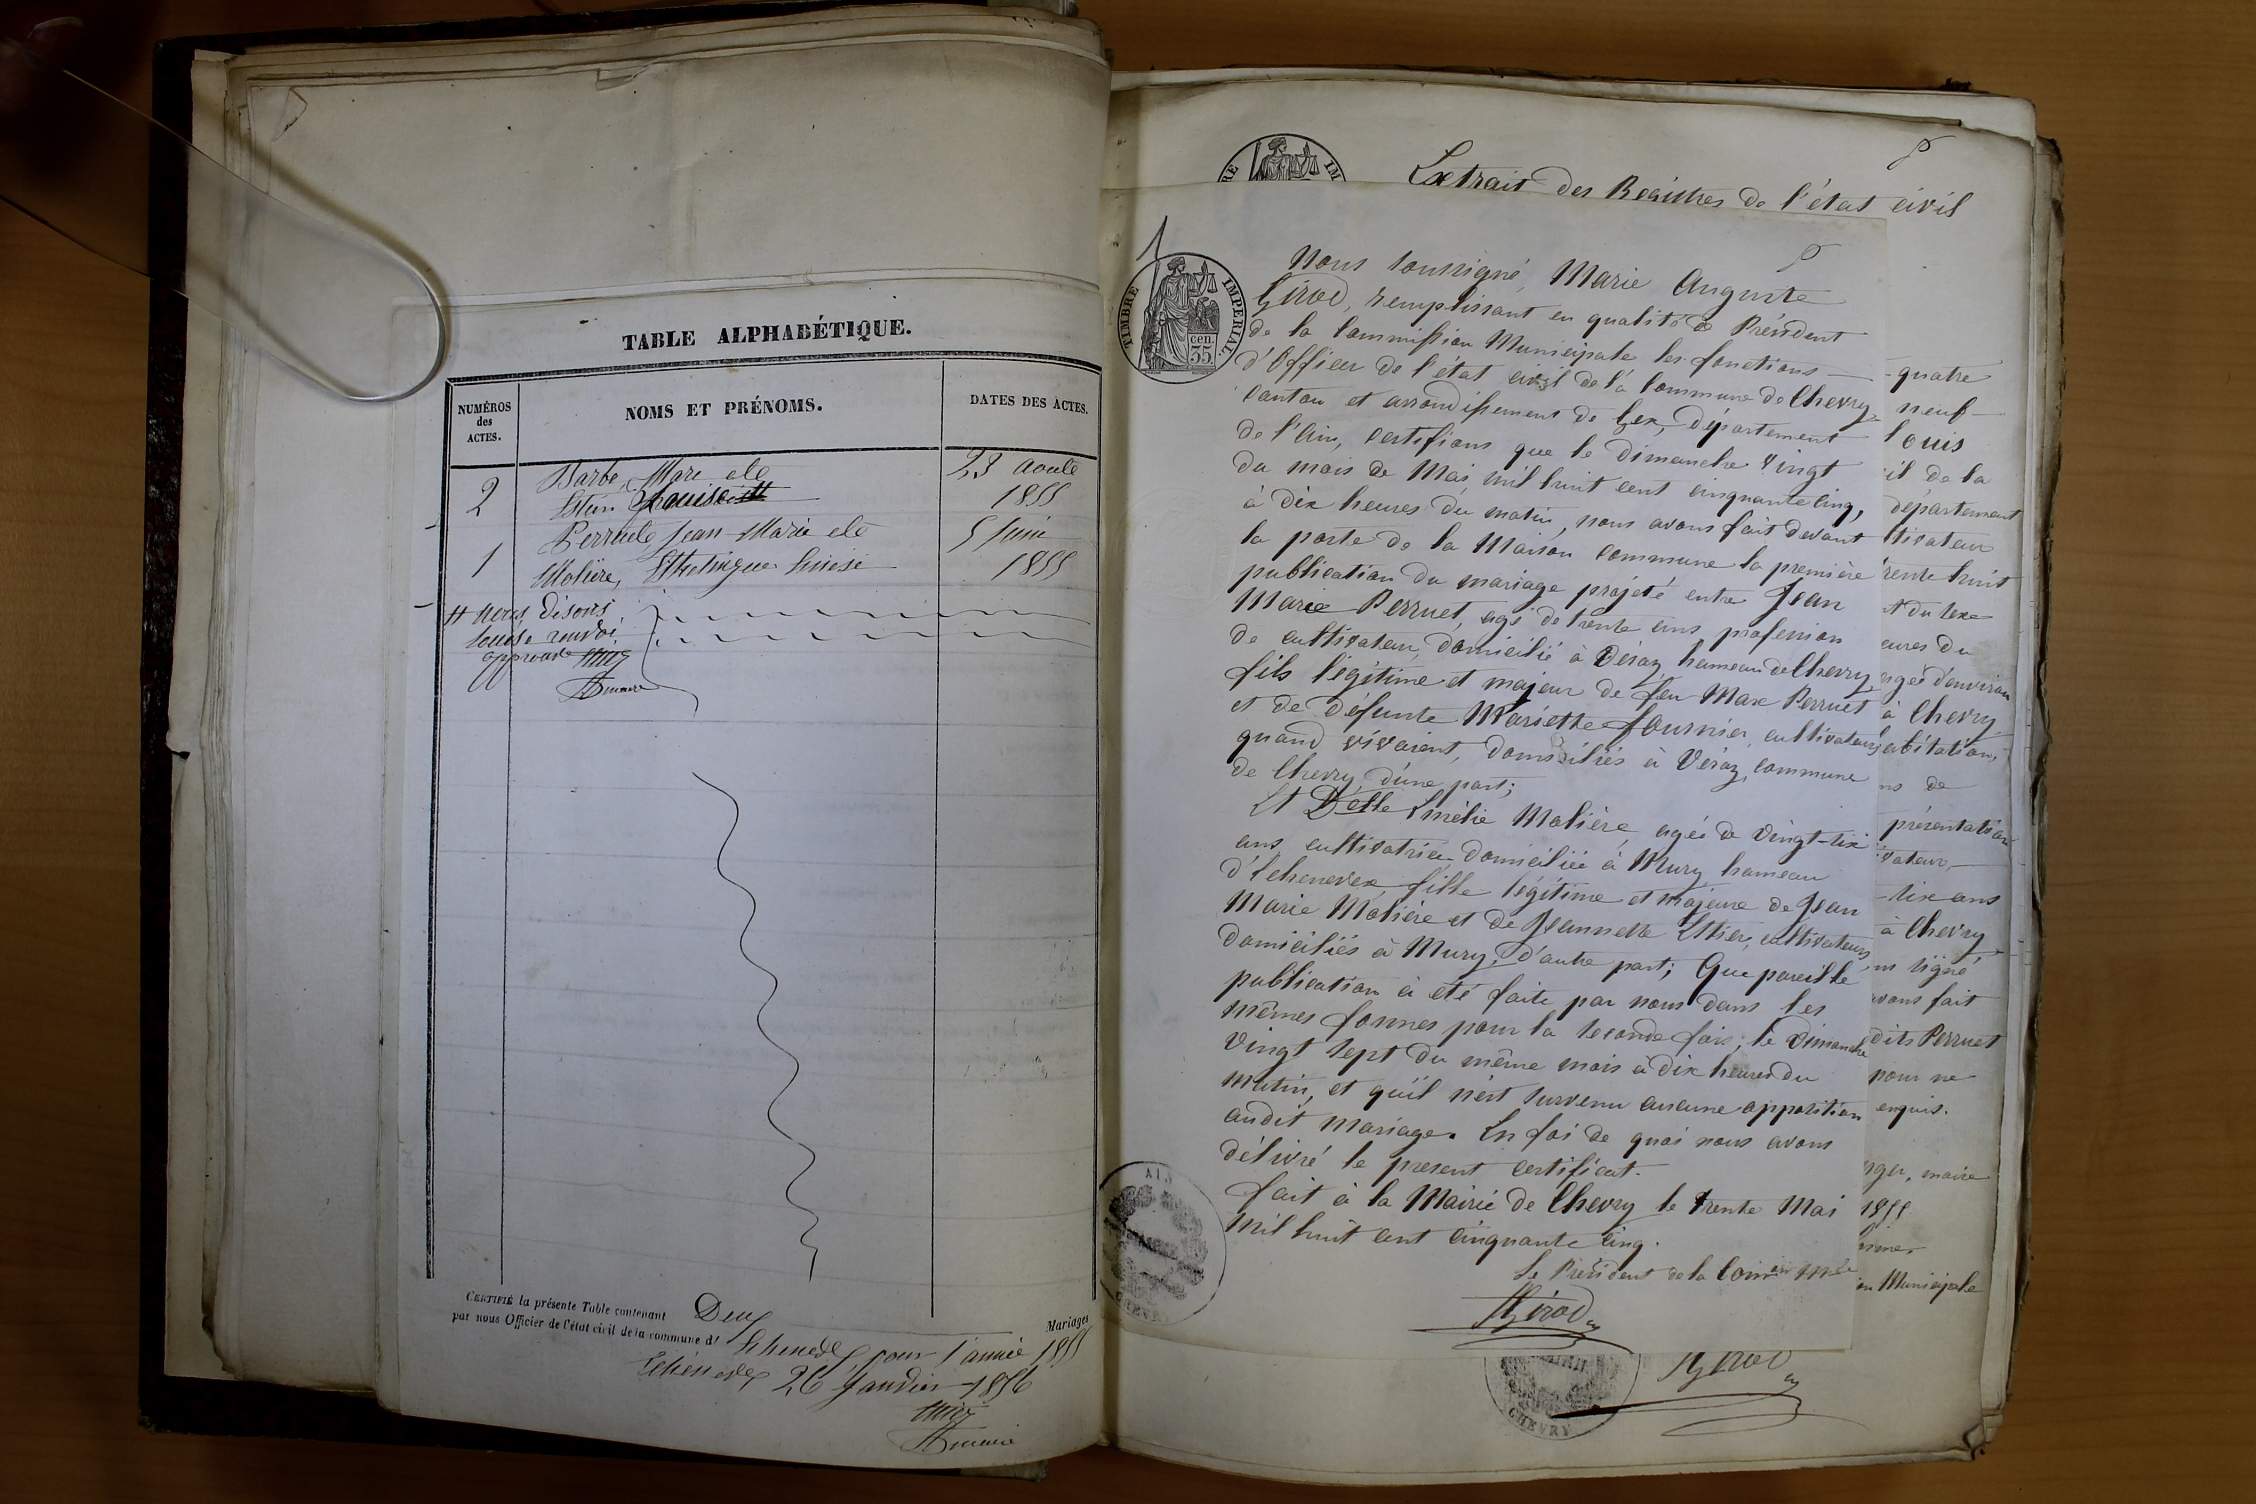 TABLE ALPHABÉTIQUE.
NUMÉROS
des
ACTES.
NOMS ET PRÉNOMS.
DATES DES ACTES.
Barbe, Marc et
23 aoult
2
Louise #
1855
Perruet Jean Marie et
5 Juin
1
Molière,
1855
# nous disons
louise renvoi
approuvé
CERTIFIÉ la présente Table contenant Deux Mariages
par nous Officier de l'état civil de la commune d'
Echenevex pour l'année 1855
Echenevex 26 Janvier 1856
Extrait des Registres de l'état civil
TIMBRE IMPERIAL.
cen.
35.
Nous soussigné, Marie Auguste
Girod, remplissant en qualité de Président
de la Commission Municipale les fonctions
d'Officier de l'état civil de la Commune de Chevry
Canton et arrondissement de Gex, Département
de l'Ain, certifions que le Dimanche vingt
du mois de Mai, mil huit cent cinquante cinq,
à dix heures du matin, nous avons fait devant
la porte de la Maison commune la première
publication du mariage projeté entre Jean
Marie Perruet, agé de trente ans, profession
de cultivateur, domicilié à Véraz, hameau de Chevry,
fils légitime et majeur de feu Marc Perruet
et de défunte Mariette Fournier, cultivateurs
quand vivaient, domiciliés à Véraz, commune
de Chevry, d'une part;
Et Delle Emélie Molière, agée de vingt-six
ans, cultivatrice, domiciliée à Mury hameau
d'Echenevex, fille légitime et majeure de Jean
Marie Molière et de Jeannette Estier, cultivateurs,
domiciliés à Mury, d'autre part; Que pareille
publication a été faite par nous dans les
mêmes formes pour la seconde fois, le Dimanche
vingt sept du même mois à dix heures du
matin, et qu'il n'est survenu aucune opposition
audit mariage. En foi de quoi nous avons
délivré le present certificat.
fait à la Mairie de Chevry le trente Mai
mil huit cent cinquante cinq.
Le Président de la Comion Mle
Girod
quatre
neuf
Louis
il de la
département
tivateur
rente huit
t du sexe
eures du
agée d'environ
à Chevry
abitation,
ns de
présentation
vateur,
-six ans
à Chevry
signé
avons fait
dits Perruet
pour ne
enquis.
ger, maire
1855
on Municipale
Girod
CHEVRY